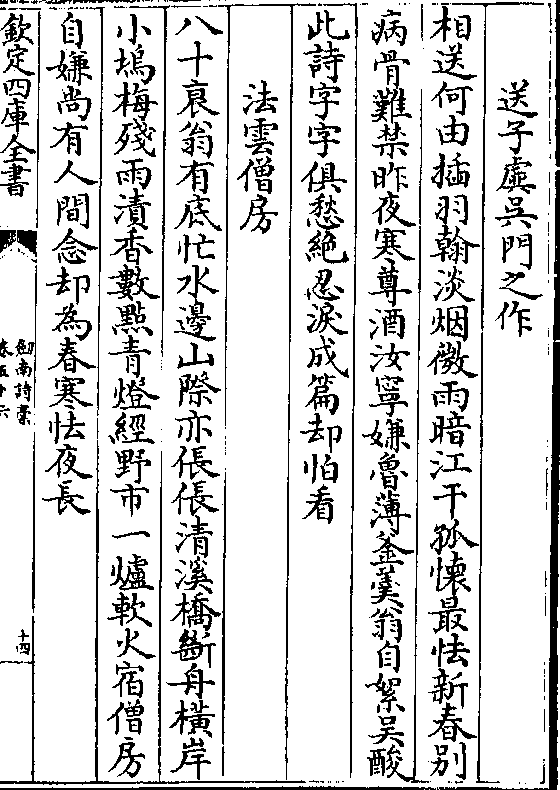 送子虡吳門之作
相送何由插羽翰淡烟微雨暗江干孤懐最怯新春别
病骨難禁昨夜寒尊酒汝寧嫌魯薄釜羮翁自絮吴酸
此詩字字俱愁絶忍淚成篇却怕看
法雲僧房
八十衰翁有底忙水邊山際亦倀倀清溪橋斷舟橫岸
小塢梅殘雨漬香數點青燈經野市一爐軟火宿僧房
自嫌尚有人間念却為春寒怯夜長
欽定四庫全書
劒南詩藁
卷五十六
十四